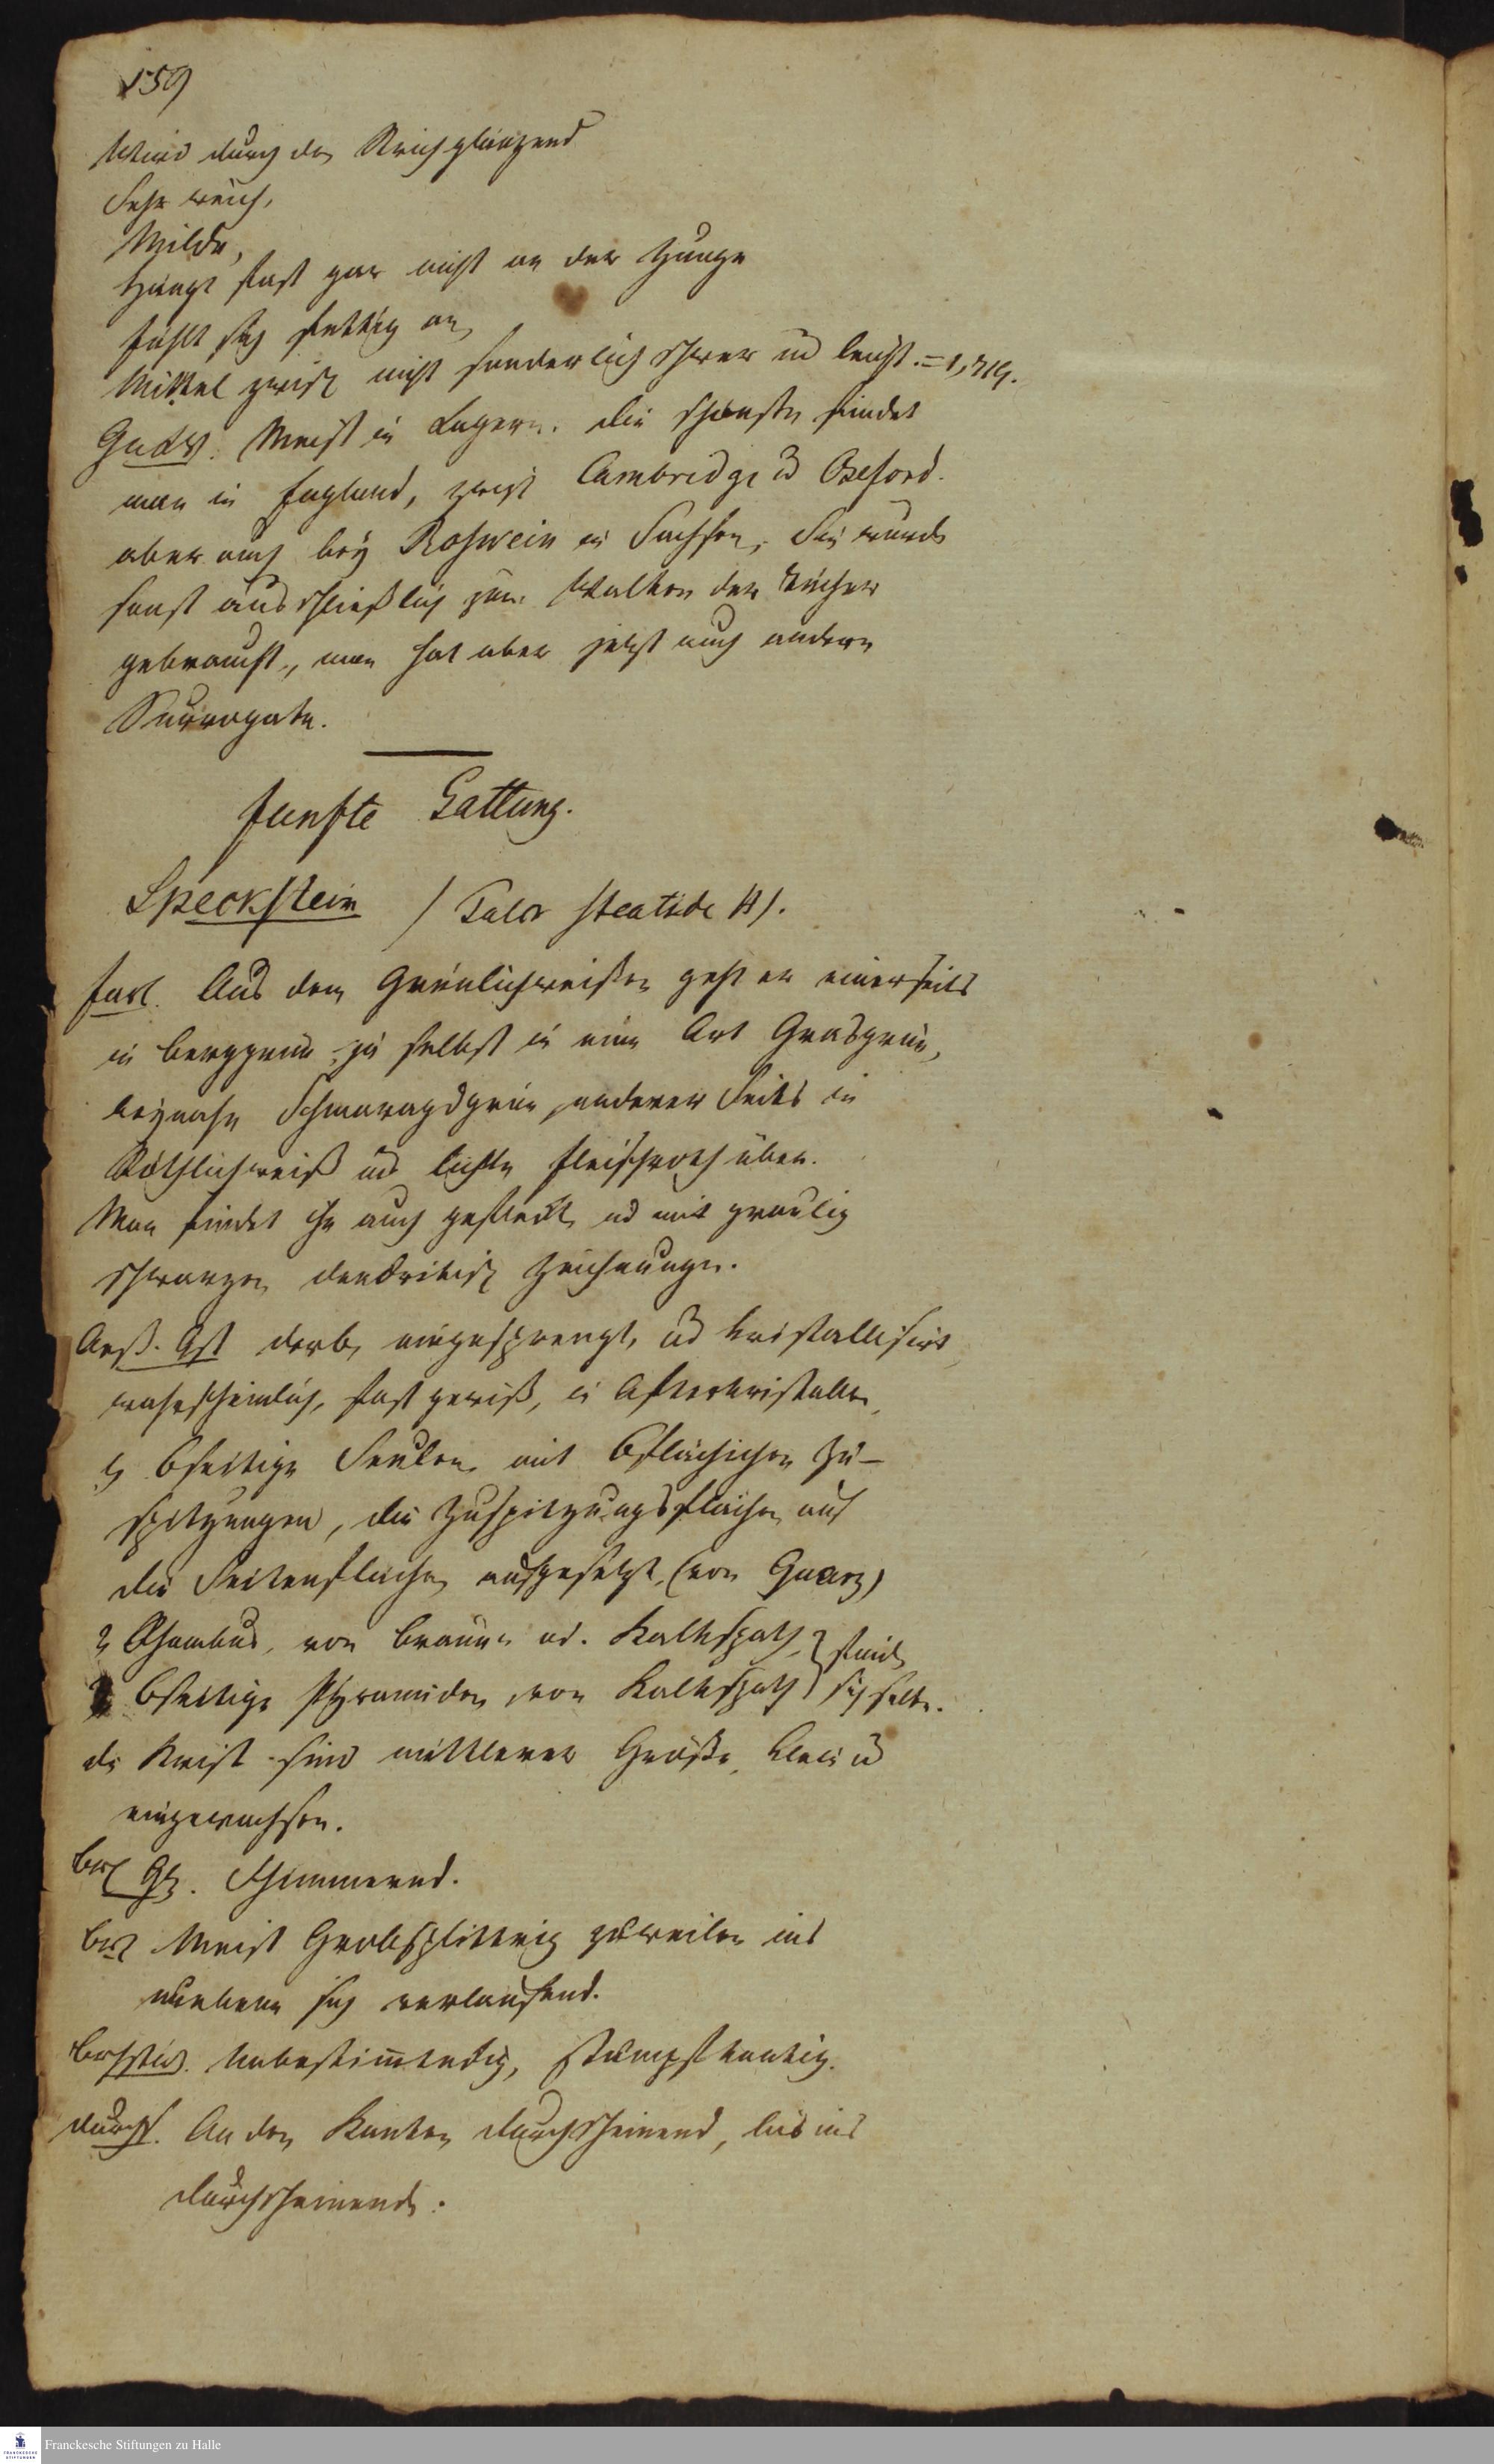 159
Wird durch den Strich glänzend
Sehr weich,
Milde,
Hängt fast gar nicht an der Zunge
fühlt sich fettig an,
Mittel zwisch nicht sonderlich schwer ud leicht. = 1,719.
Meist in Lagern. die schönste findet
man in England, zwisch Cambridge ud Oxeford.
aber auch bey Roswein in Sachsen, Sie wurde
sonst ausschließlich zum Walken der Tücher
gebraucht, man hat aber jetzt auch andere
Surrogate.
funfte Gattung.
Speckstein / Talc steatide H/.
farb. Aus dem Grünlichweißen geht er einerseits
in berggrün, ja selbst in eine Art Grasgrün,
beynahe Schmaragdgrün, anderer Seits in
Röthlichweiß ud lichte fleischroth über.
Man findet ihn auch gefleckt, ud mit graulich
schwarzen dendritisch Zeichnungen.
Aeß. Gst derb, eingesprengt, ud kristallisirt
wahrscheinlich, fast gewiß, in Afterkristallen,
6seitige Seulen mit 6flächichen Zu-
spitzungen, die Zuspitzungsflächen auf
die Seitenflächen aufgesetzt, (von Quarz)
Rhombus, von braun od. Kalkspath, } find
6seitige Pyramiden, von Kalkspath } sich selten.
die Krist. sind mittlerer Größe, klein ud
eingewachsen.
br Gz. Schimmernd.
br Meist Grobsplittrig zuweilen ins
unebene sich verlaufend.
brchstck. Unbestimmteckig, stumpfkantig.
durchs. An den Kanten durchscheinend, bis ins
durchscheinende.
Franckesche Stiftungen zu Halle
FRANCKESCHE
STIFTUNGEN